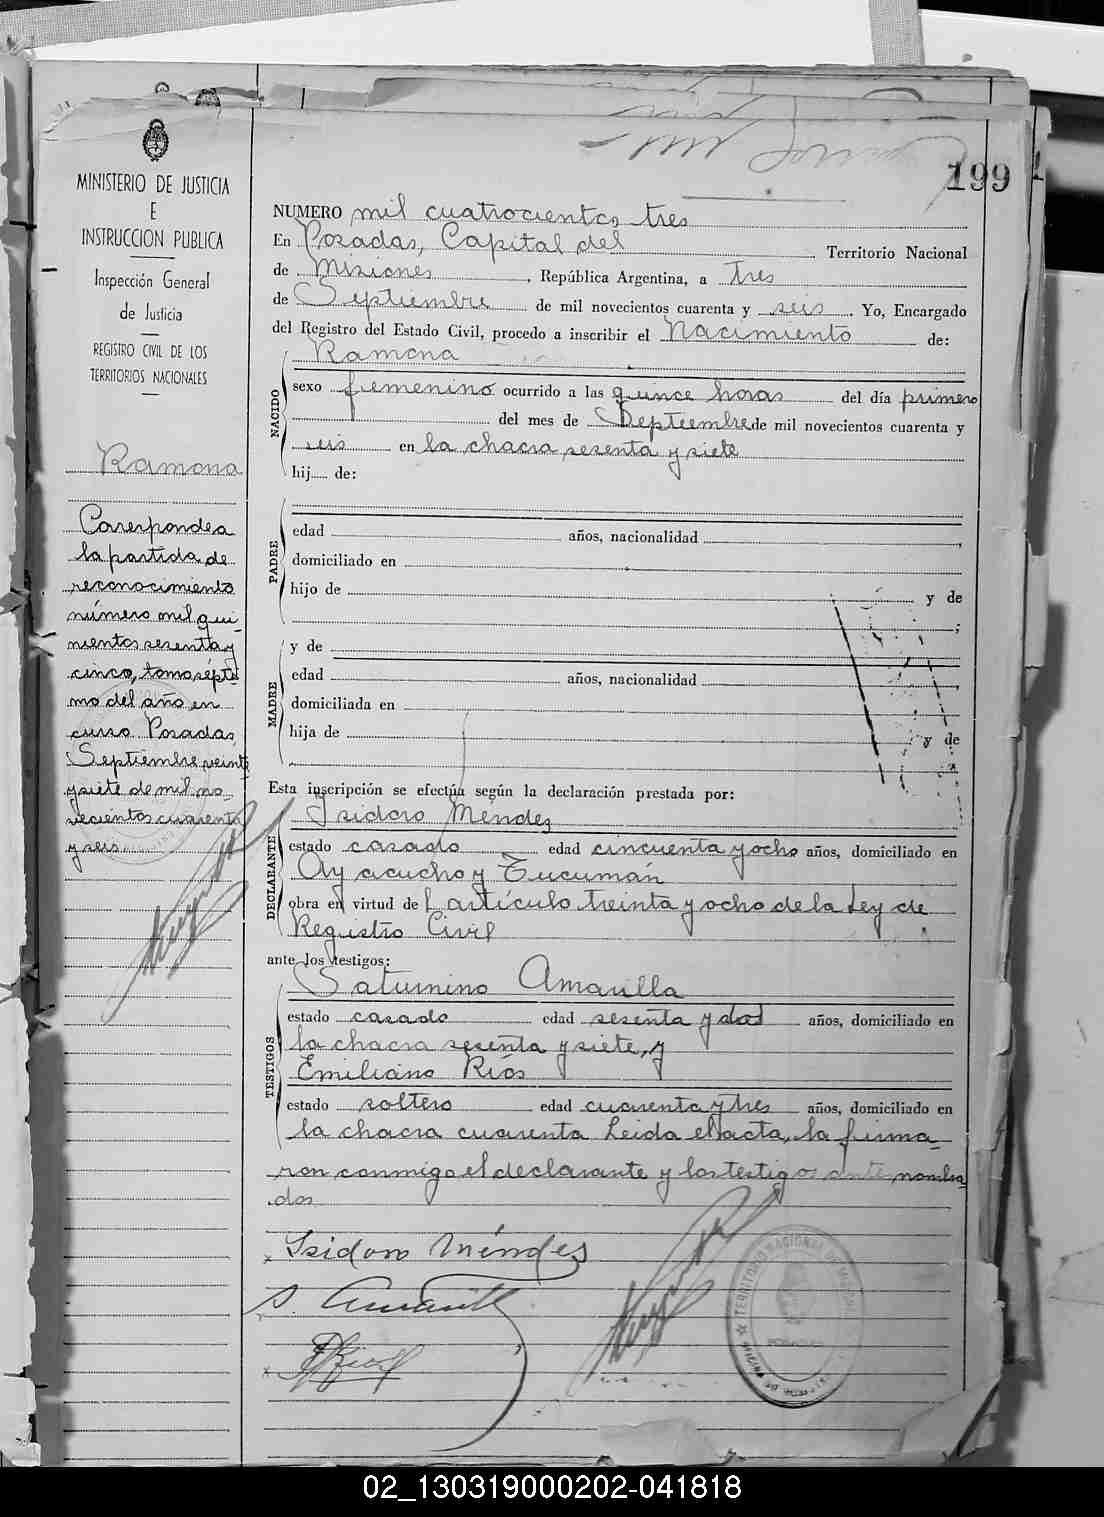 199
MINISTERIO DE JUSTICIA
E
INSTRUCCION PUBLICA
Inspección General
de Justicia
REGISTRO CIVIL DE LOS
TERRITORIOS NACIONALES
Ramona
Coresponde a
la partida de
reconocimiento
número mil qui-
nientos sesenta y
cinco, tomo sépti-
mo del año en
curso. Posadas,
Septiembre veinte
y siete de mil no-
vecientos cuarenta
y seis.
NUMERO mil cuatrocientos tres
En Posadas, Capital del Territorio Nacional
de Misiones, República Argentina, a tres
de Septiembre de mil novecientos cuarenta y seis. Yo, Encargado
del Registro del Estado Civil, procedo a inscribir el Nacimiento de:
Ramona
NACIDO
sexo femenino ocurrido a las quince horas del día primero
del mes de Septiembre de mil novecientos cuarenta y
seis en la chacra sesenta y siete
hij.... de:
PADRE
edad años, nacionalidad
domiciliado en
hijo de y de
;
y de
MADRE
edad años, nacionalidad
domiciliada en
hija de y de
Esta inscripción se efectúa según la declaración prestada por:
Isidoro Méndez
DECLARANTE
estado casado edad cincuenta y ocho años, domiciliado en
Ayacucho y Tucumán
obra en virtud del artículo treinta y ocho de la Ley de
Registro Civil
ante los testigos:
Saturnino Amarilla
TESTIGOS
estado casado edad sesenta y dos años, domiciliado en
la chacra sesenta y siete, y
Emiliano Ríos
estado soltero edad cuarenta y tres años, domiciliado en
la chacra cuarenta Leida el acta, la firma-
ron conmigo el declarante y los testigos ante nombra-
dos
Isidoro Méndes
S. Amarilla
TERRITORIO NACIONAL DE MISIONES
POSADAS
02_130319000202-041818